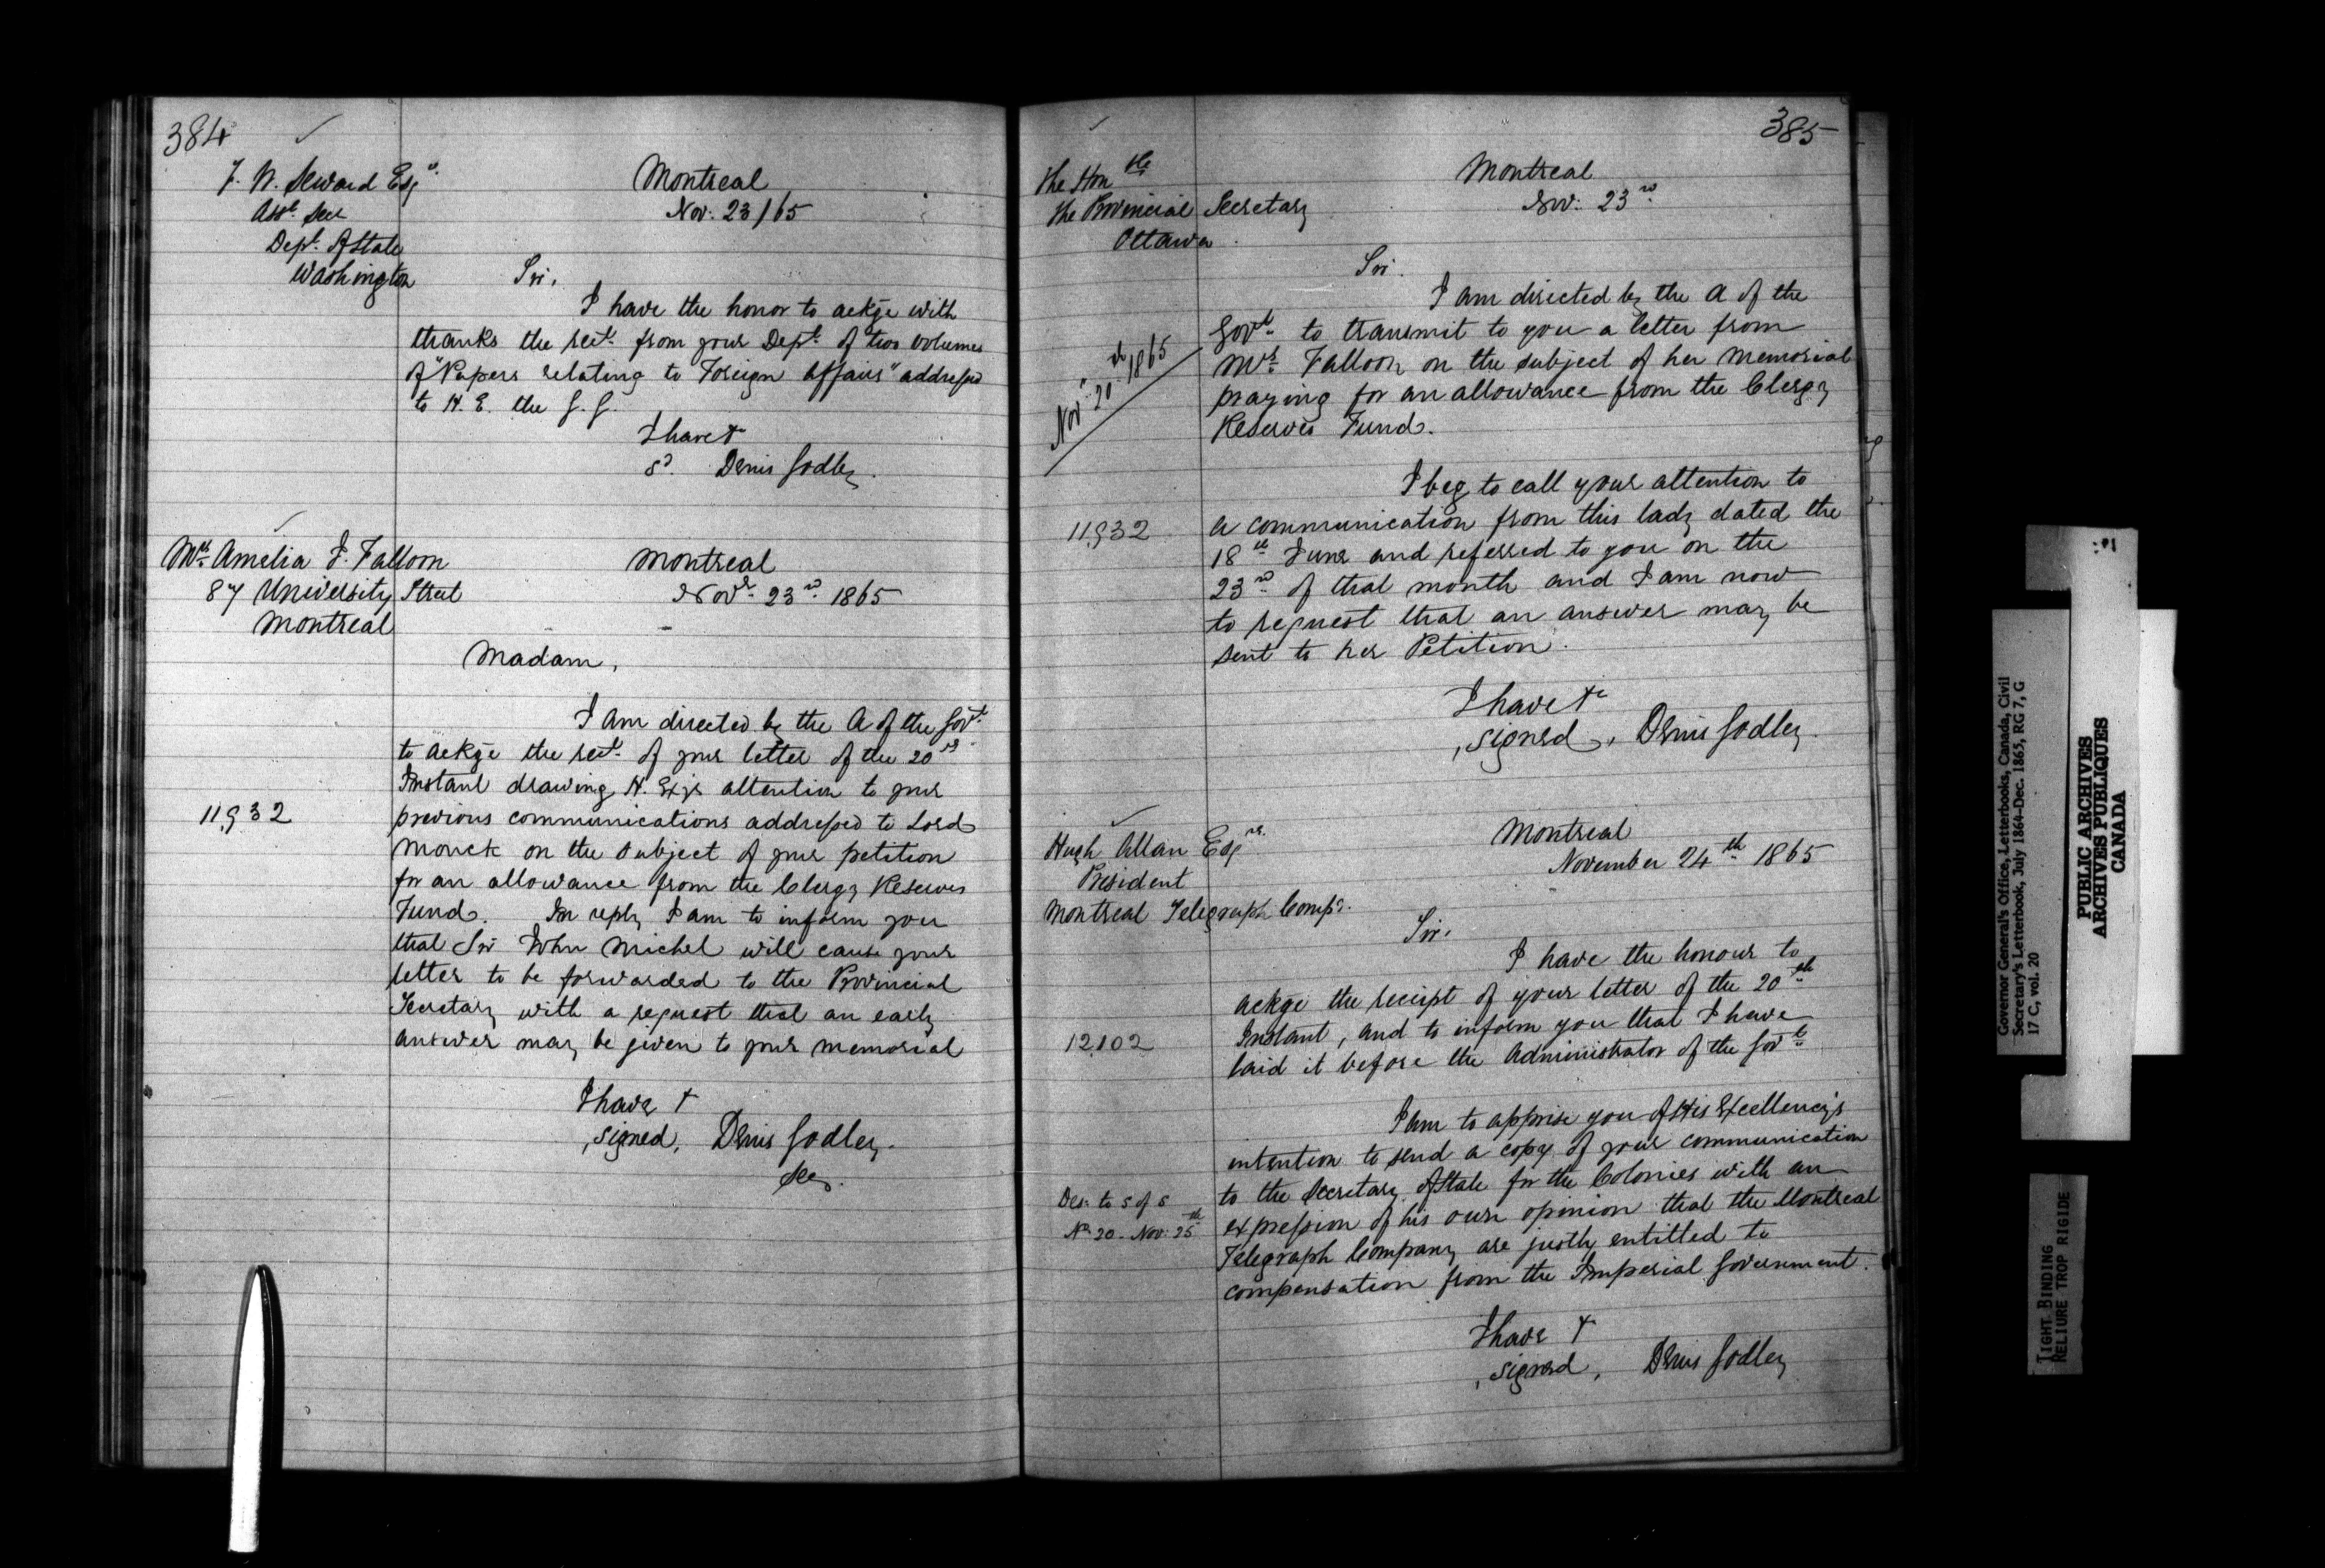 384
F. W. Seward Esqr.
Asst. Sec
Dept. of State
Washington
Montreal
Nov. 23/65
Sir,
I have the honor to ackge with
thanks the rect. from your Dept. of two volumes
of "Papers relating to Foreign Affairs" addressed
to H. E. the G. G.
I have &
sd. Denis Godley.
Mrs. Amelia F. Falloon
87 University Street
Montreal
Montreal
Novr. 23rd. 1865
Madam,
I am directed by the A of the Govt.
to ackge the rect. of your letter of the 20th
Instant drawing H. Exys attention to your
11,932
previous communications addressed to Lord
Monck on the subject of your petition
for an allowance from the Clergy Reserves
Fund. In reply I am to inform you
that Sir John Michel will cause your
letter to be forwarded to the Provincial
Secretary with a request that an early
answer may be given to your memorial
I have &
signed, Denis Godley.
Sec.
385
The Honble
The Provincial Secretary
Ottawa.
Montreal
Nov. 23rd.
Sir.
I am directed by the A of the
Govt. to transmit to you a letter from
Mrs. Falloon on the subject of her Memorial
praying for an allowance from the Clergy
Reserves Fund.
Novr. 20th 1865
I beg to call your attention to
11,932
a communication from this lady dated the
18th June and referred to you on the
23rd of that month and I am now
to request that an answer may be
sent to her Petition.
I have &c
signed, Denis Godley.
Hugh Allan Esqre.
President
Montreal Telegraph Compy.
Montreal
November 24th 1865
Sir,
I have the honour to
ackge the receipt of your letter of the 20th
12,102
Instant, and to inform you that I have
laid it before the Administrator of the Govt.
I am to apprise you of His Excellency's
intention to send a copy of your communication
Des. to S of S
No. 20 - Nov. 25th
to the Secretary of State for the Colonies with an
expression of his own opinion that the Montreal
Telegraph Company are justly entitled to
compensation from the Imperial Government.
I have &
signed, Denis Godley
Governor General's Office, Letterbooks, Canada, Civil
Secretary's Letterbook, July 1864-Dec. 1865, RG 7, G
17 C, vol. 20
PUBLIC ARCHIVES
ARCHIVES PUBLIQUES
CANADA
TIGHT BINDING
RELIURE TROP RIGIDE